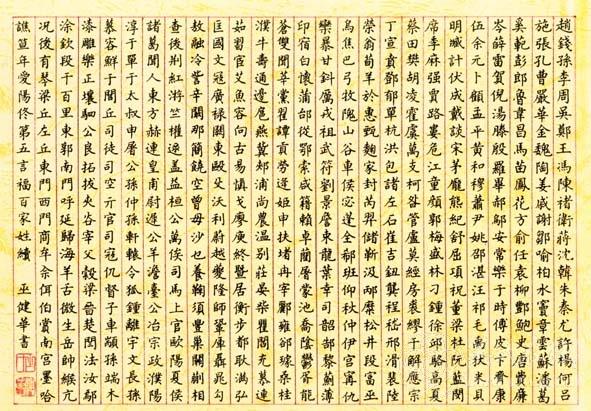 趙錢孫李周吳鄭王馮陳褚衛蔣沈韓朱秦尤許楊何呂
施張孔曹嚴華金魏陶姜戚謝鄒喻柏水竇章雲蘇潘葛
奚範彭郎魯韋昌馬苗鳳花方俞任袁柳酆鮑史唐費廉
岑薛雷賀倪湯滕殷羅畢郝鄔安常樂于時傅皮卞齊康
伍余元卜顧孟平黃和穆蕭尹姚邵湛汪祁毛禹狄米貝
明臧計伏成戴談宋茅龐熊紀舒屈項祝董梁杜阮藍閔
席季麻强賈路婁危江童顏郭梅盛林刁鍾徐邱駱高夏
蔡田樊胡凌霍虞萬支柯昝管盧莫經房裘繆干解應宗
丁宣賁鄧郁單杭洪包諸左石崔吉鈕龔程嵇邢滑裴陸
榮翁荀羊於惠甄麴家封芮羿儲靳汲邴糜松井段富巫
烏焦巴弓牧隗山谷車侯宓蓬全郗班仰秋仲伊宮甯仇
欒暴甘鈄厲戎祖武符劉景詹束龍葉幸司韶郜黎薊薄
印宿白懷蒲邰從鄂索咸籍賴卓藺屠蒙池喬陰鬱胥能
蒼雙聞莘黨翟譚貢勞逄姬申扶堵冉宰酈雍郤璩桑桂
濮牛壽通邊扈燕冀郟浦尚農溫別莊晏柴瞿閻充慕連
茹習宦艾魚容向古易慎戈廖庾終暨居衡步都耿滿弘
匡國文寇廣祿闕東毆殳沃利蔚越夔隆師鞏厙聶晁勾
敖融冷訾辛闞那簡饒空曾毋沙乜養鞠須豐巢關蒯相
查後荊紅游竺權逯蓋益桓公萬俟司馬上官歐陽夏侯
諸葛聞人東方赫連皇甫尉遲公羊澹臺公冶宗政濮陽
淳于單于太叔申屠公孫仲孫軒轅令狐鍾離宇文長孫
慕容鮮于閭丘司徒司空亓官司寇仉督子車顓孫端木
漆雕樂正壤駟公良拓拔夾谷宰父穀梁晉楚閆法汝鄢
涂欽段干百里東郭南門呼延歸海羊舌微生岳帥緱亢
況後有琴梁丘左丘東門西門商牟佘佴伯賞南宮墨哈
譙笪年愛陽佟第五言福百家姓續 巫健華書